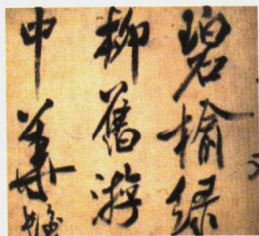 碧榆绿
柳舊游
中華